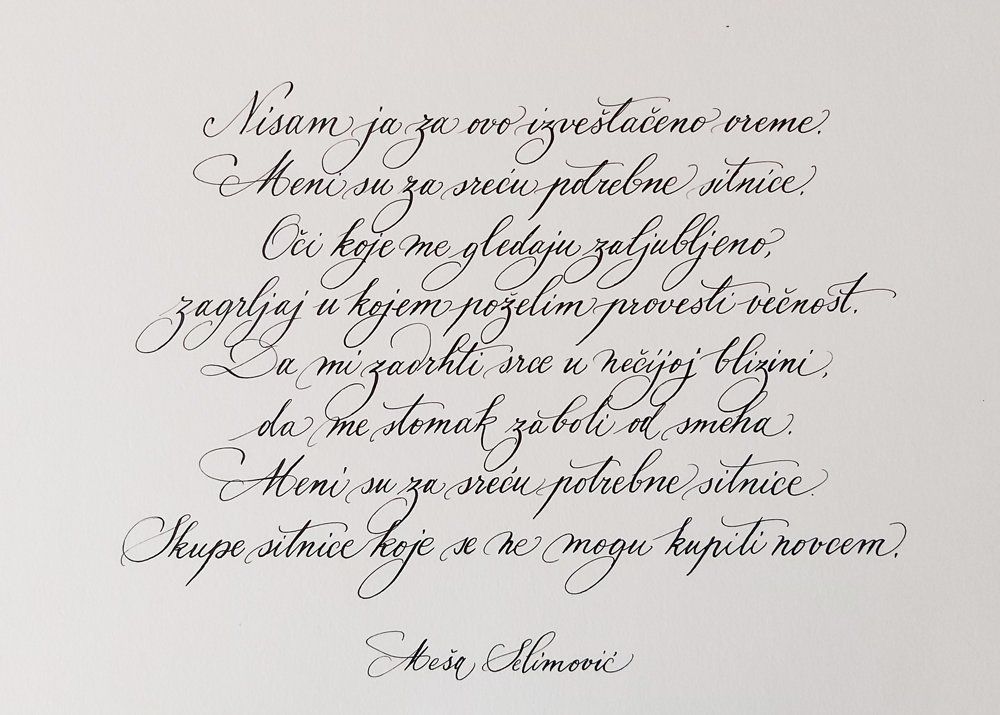 Nisam ja za ovo izveštačeno vreme.
Meni su za sreću potrebne sitnice.
Oči koje me gledaju zaljubljeno,
zagrljaj u kojem poželim provesti večnost.
Da mi zadrhti srce u nečijoj blizini,
da me stomak zaboli od smeha.
Meni su za sreću potrebne sitnice.
Skupe sitnice koje se ne mogu kupiti novcem.
Meša Selimović